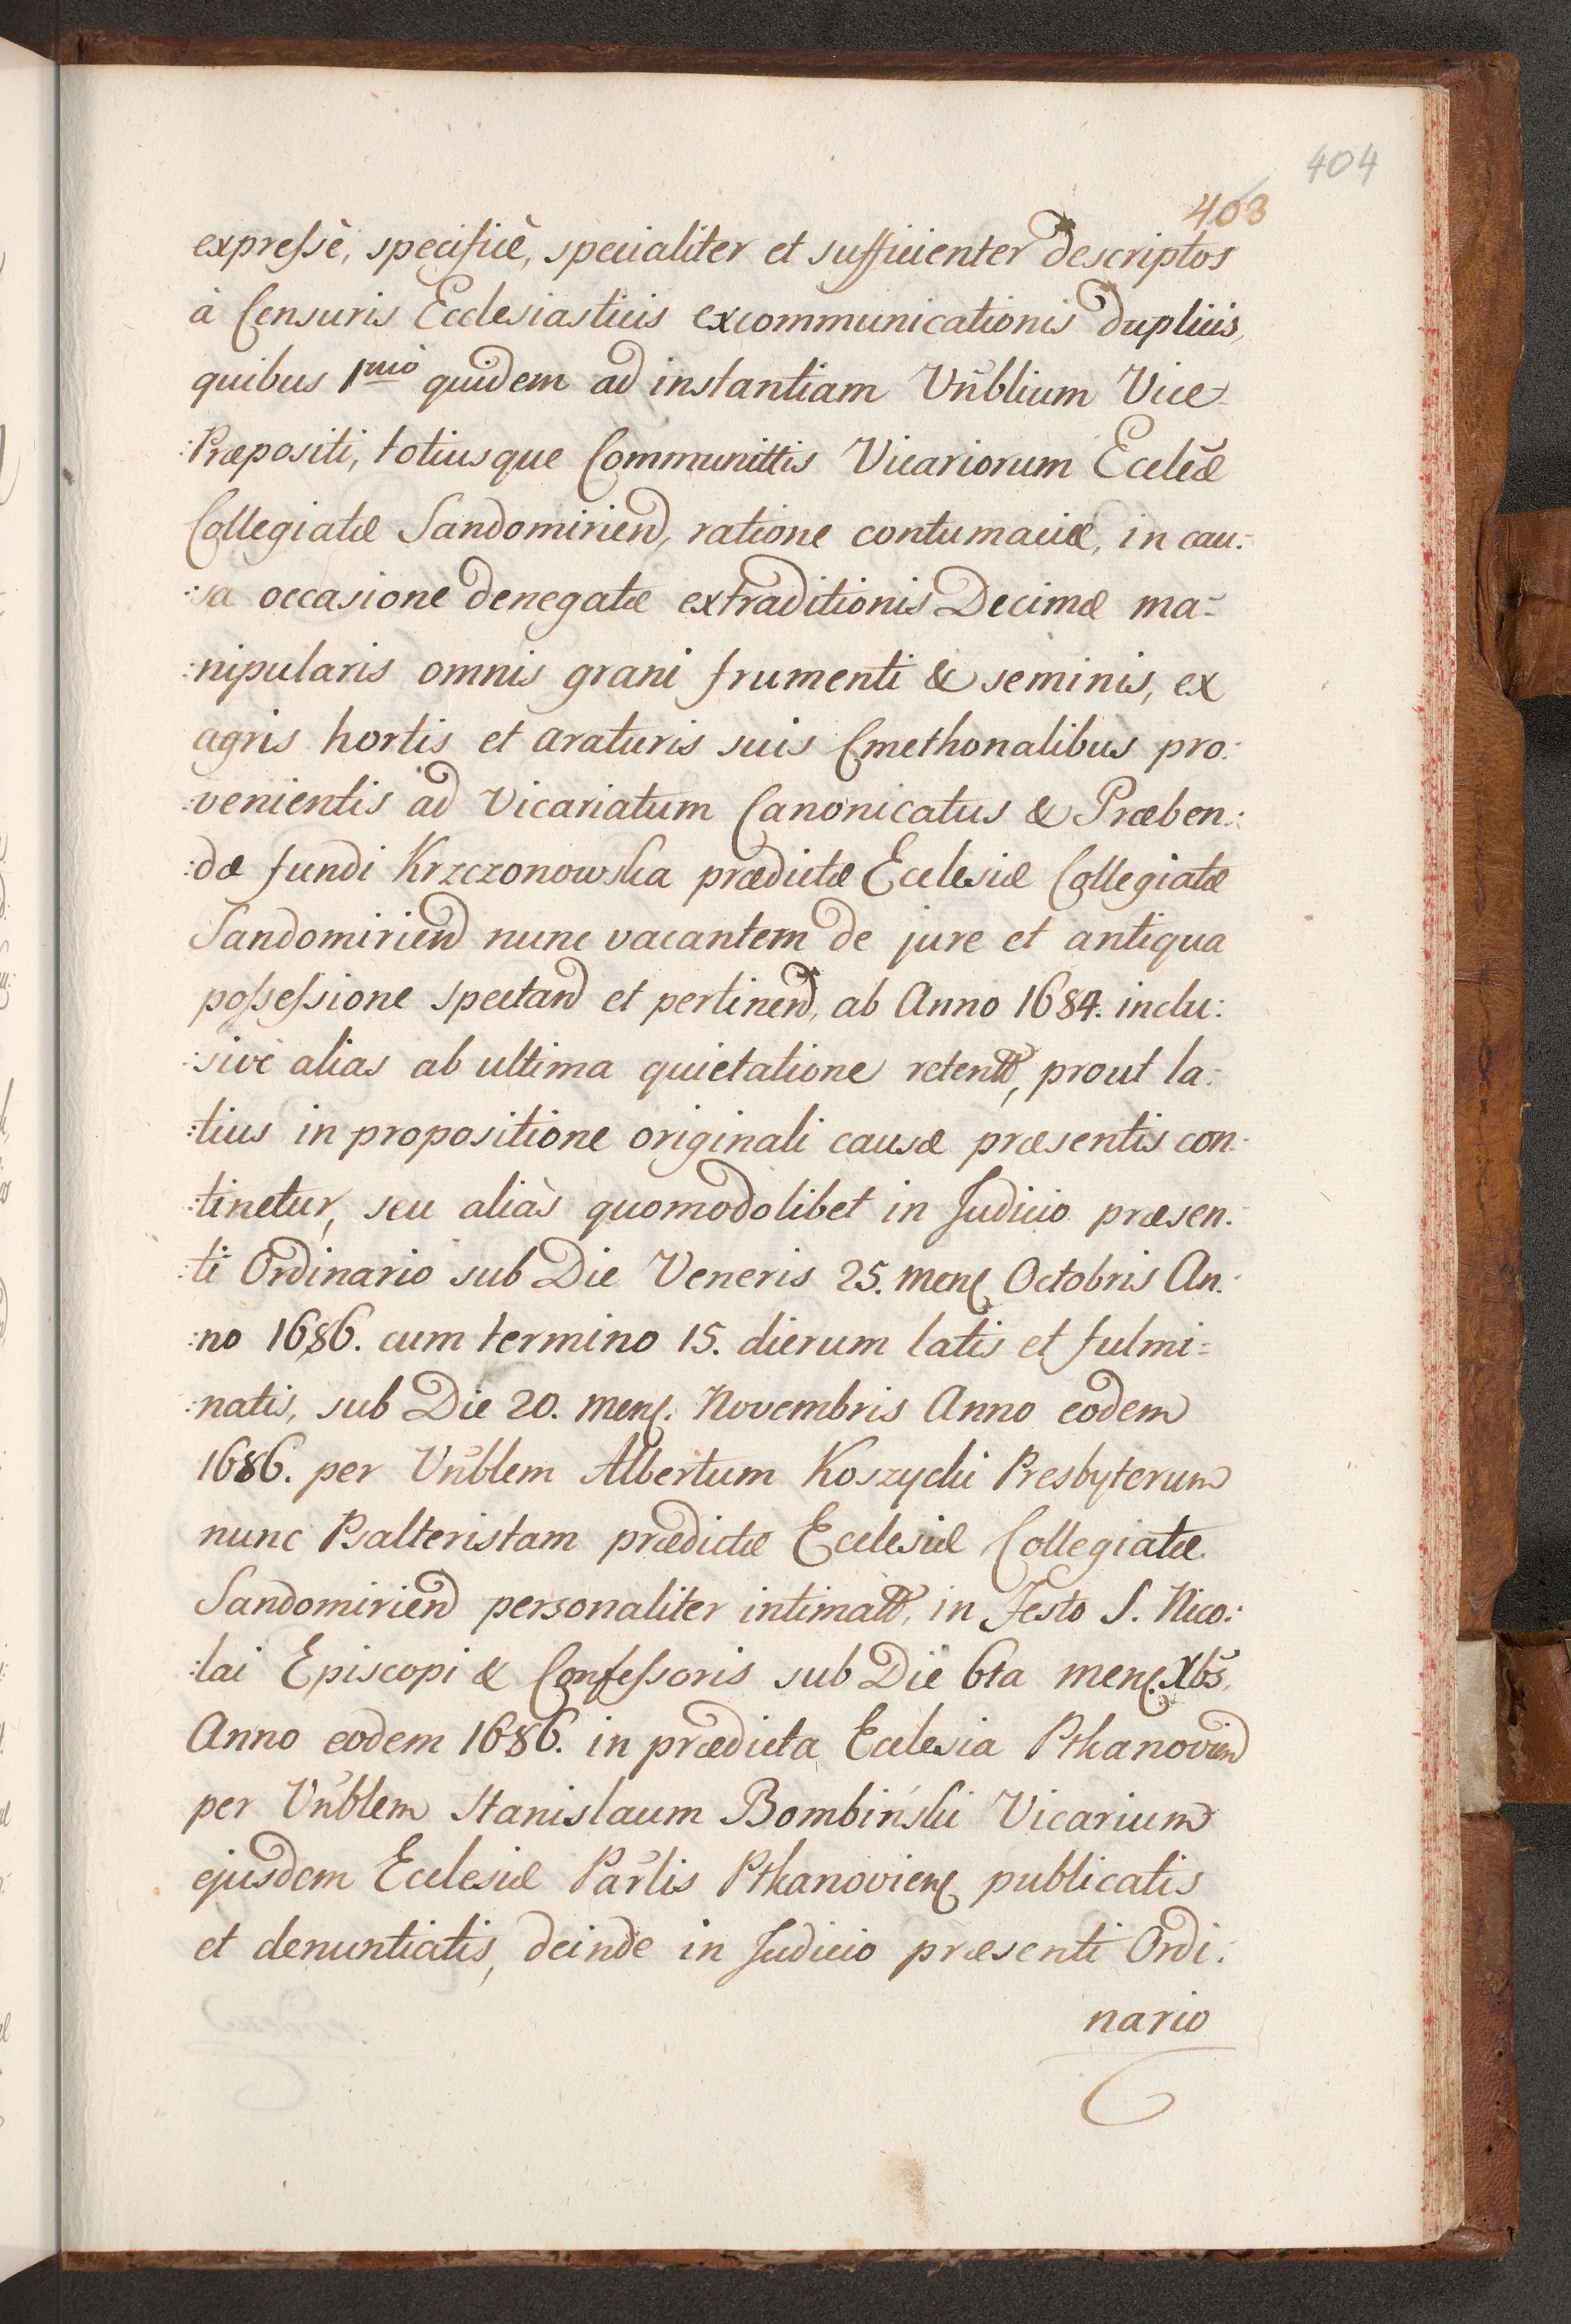 404
403
expressè, specificè, specialiter et sufficienter descriptos
à Censuris Ecclesiasticis excommunicationis duplicis,
quibus 1mò quidem ad instantiam Vñblium Vice-
:Præpositi, totiusque Communittis Vicariorum Eccleæ
Collegiatæ Sandomirien, ratione contumaciæ, in cau:
:sa occasione denegatæ extraditionis Decimæ ma-
:nipularis omnis grani frumenti & seminis, ex
agris hortis et araturis suis Cmethonalibus pro:
:venientis ad Vicariatum Canonicatus & Præben:
:dæ fundi Krzczonowska prædictæ Ecclesiæ Collegiatæ
Sandomirien nunc vacantem de jure et antiqua
possessione spectand et pertinend, ab Anno 1684. inclu:
:sivè alias ab ultima quietatione retent, prout la:
:tius in propositione originali causæ præsentis con:
:tinetur, seu aliàs quomodolibet in Judicio præsen:
:ti Ordinario sub Die Veneris 25. mens Octobris An:
:no 1686. cum termino 15. dierum latis et fulmi=
:natis, sub Die 20. mens. Novembris Anno eodem
1686. per Vñblem Albertum Koszycki Presbyterum
nunc Psalteristam prædictæ Ecclesiæ Collegiatæ
Sandomirien personaliter intimat, in Festo S. Nico:
:lai Episcopi & Confessoris sub Die 6ta mens. Xbs,
Anno eodem 1686. in prædicta Ecclesia Ptkanovien
per Vñblem Stanislaum Bombiński Vicarium
ejusdem Ecclesiæ Parlis Ptkanoviens publicatis
et denuntiatis, deinde in Judicio præsenti Ordi:
nario